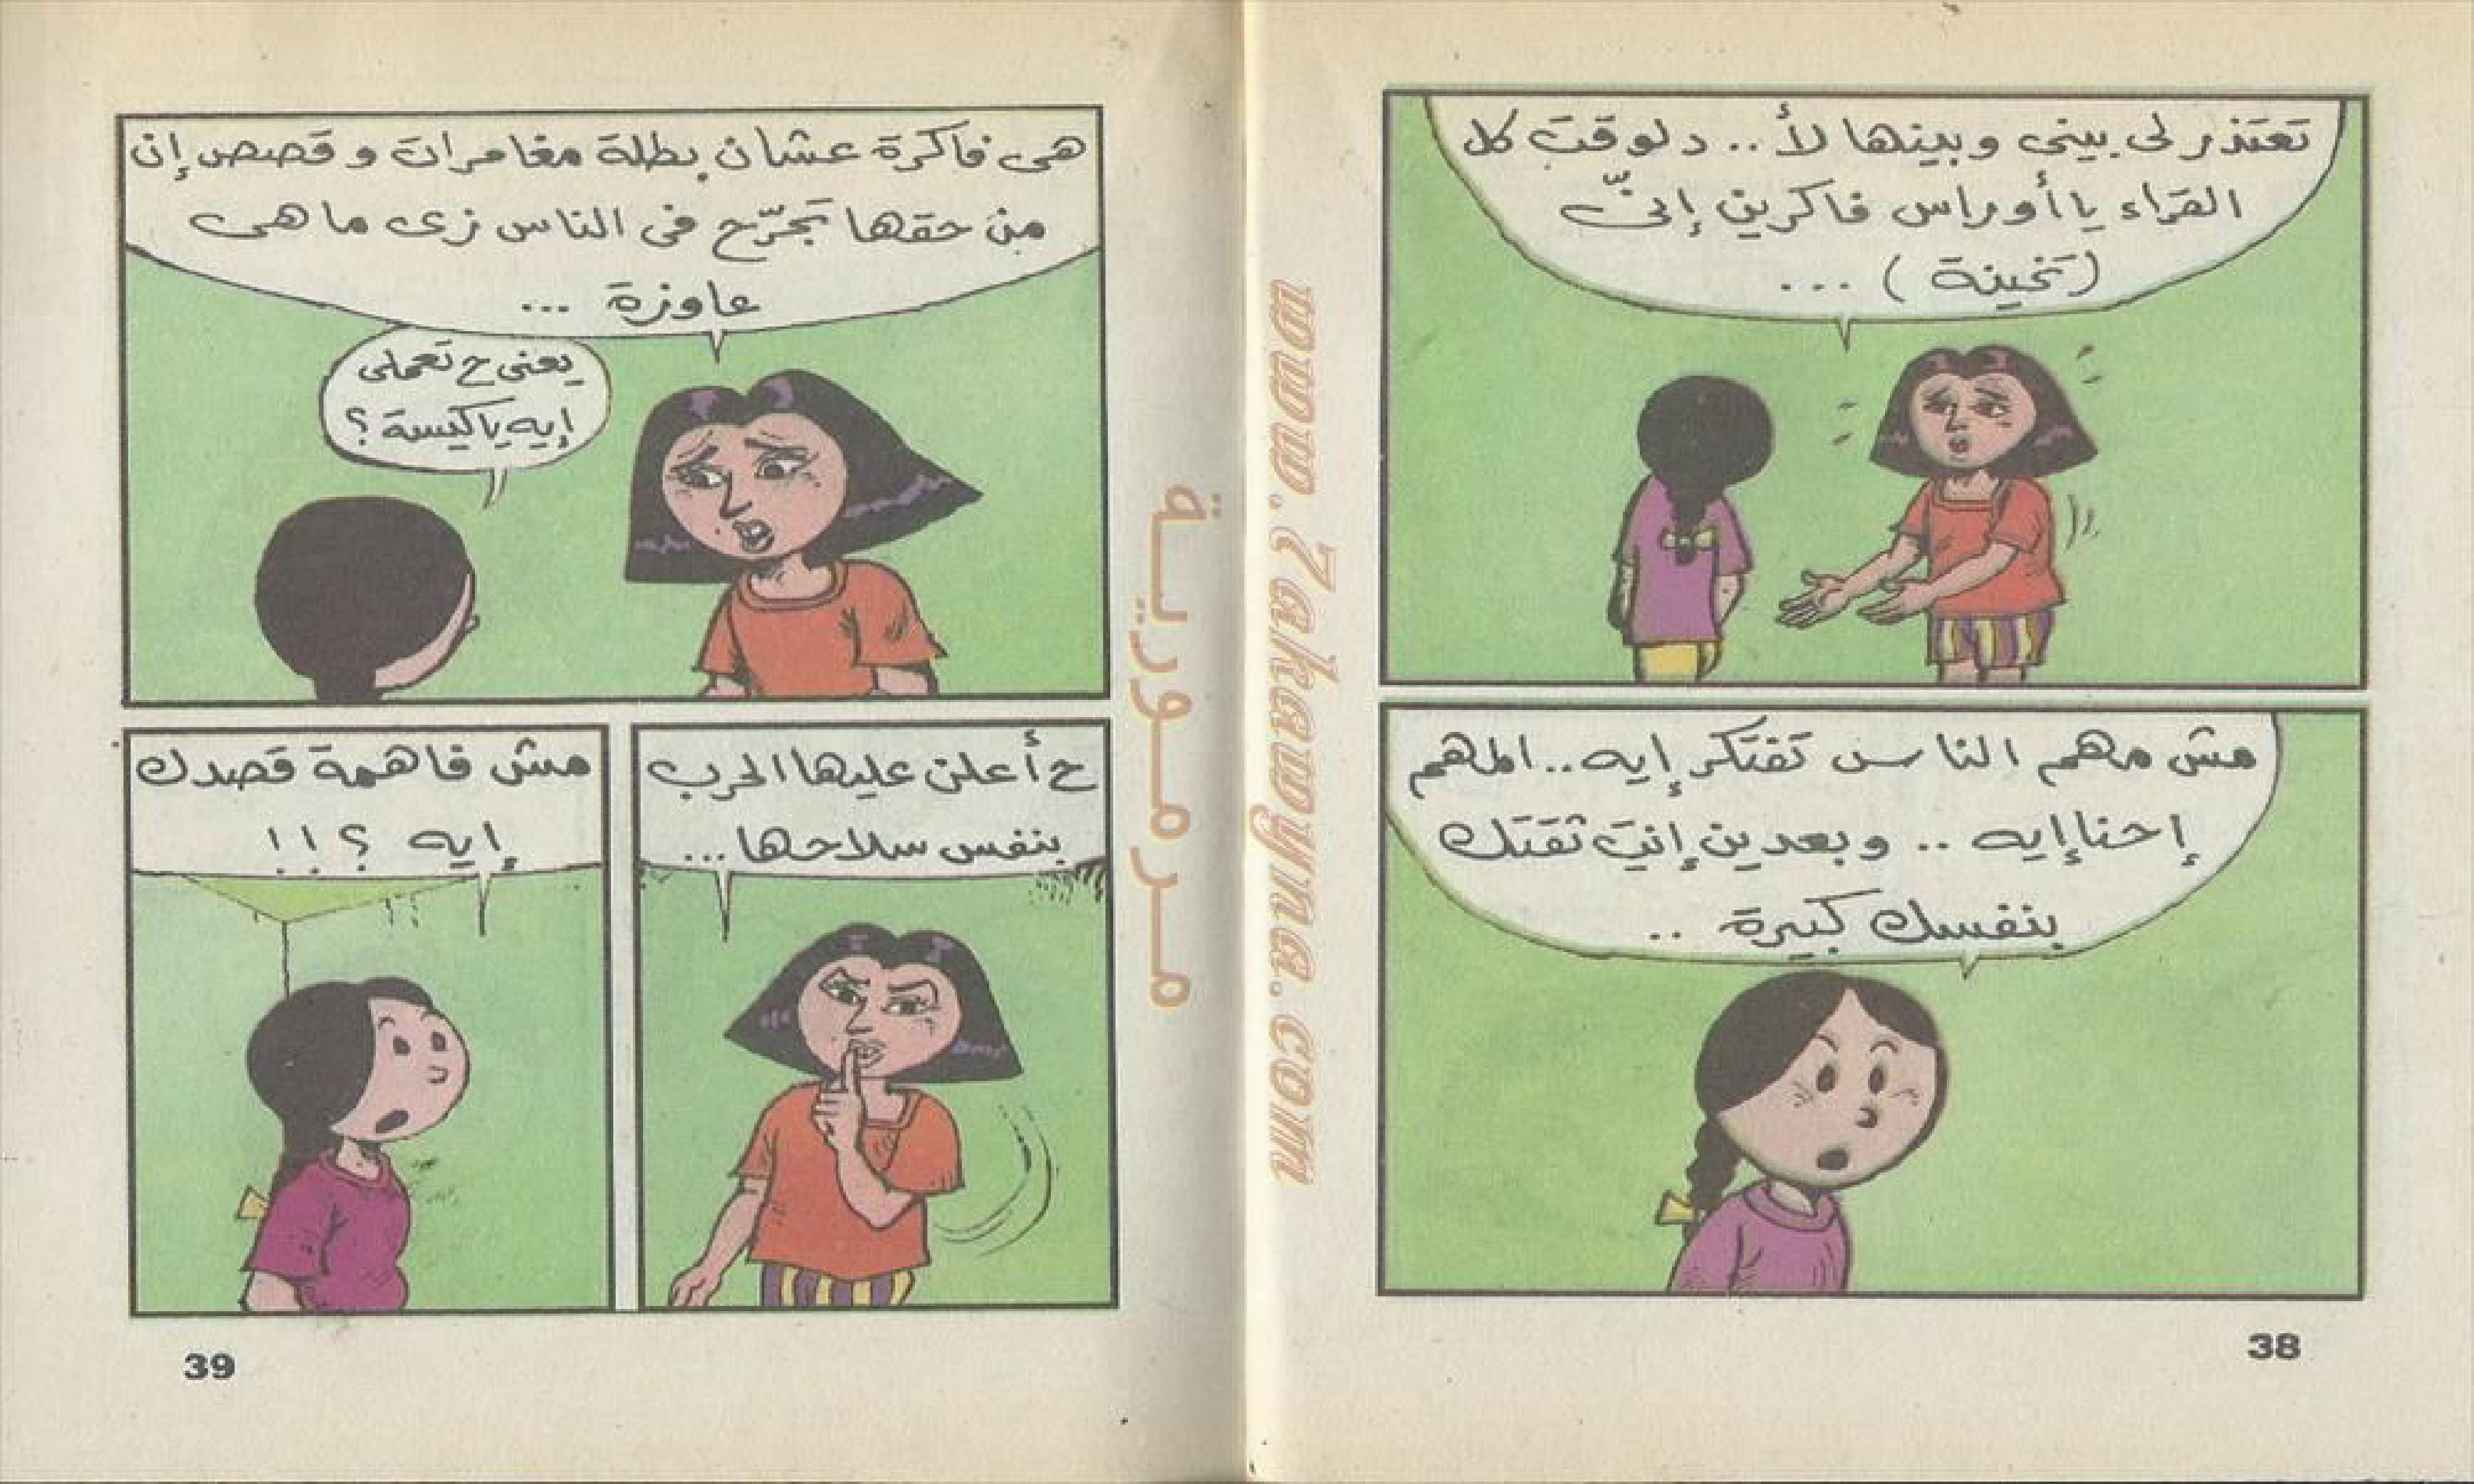 تعتذر لى بينى وبينها لأ.. دلوقت كل
القراء يا أوراس فاكرين إنىّ
(تخينة) ...
مش مهم الناس تفتكر إيه.. المهم
إحنا إيه .. وبعدين إنتِ ثقتك
بنفسك كبيرة ..
38
هى فاكرة عشان بطلة مغامرات و قصص إن
من حقها تجرّح فى الناس زى ما هى
عاوزة ...
يعنى ح تعملى
إيه يا كيسة؟
ح أعلن عليها الحرب
بنفس سلاحها...
مش فاهمة قصدك
إيه ؟!!
39
مرمورية
www.7akawyna.com